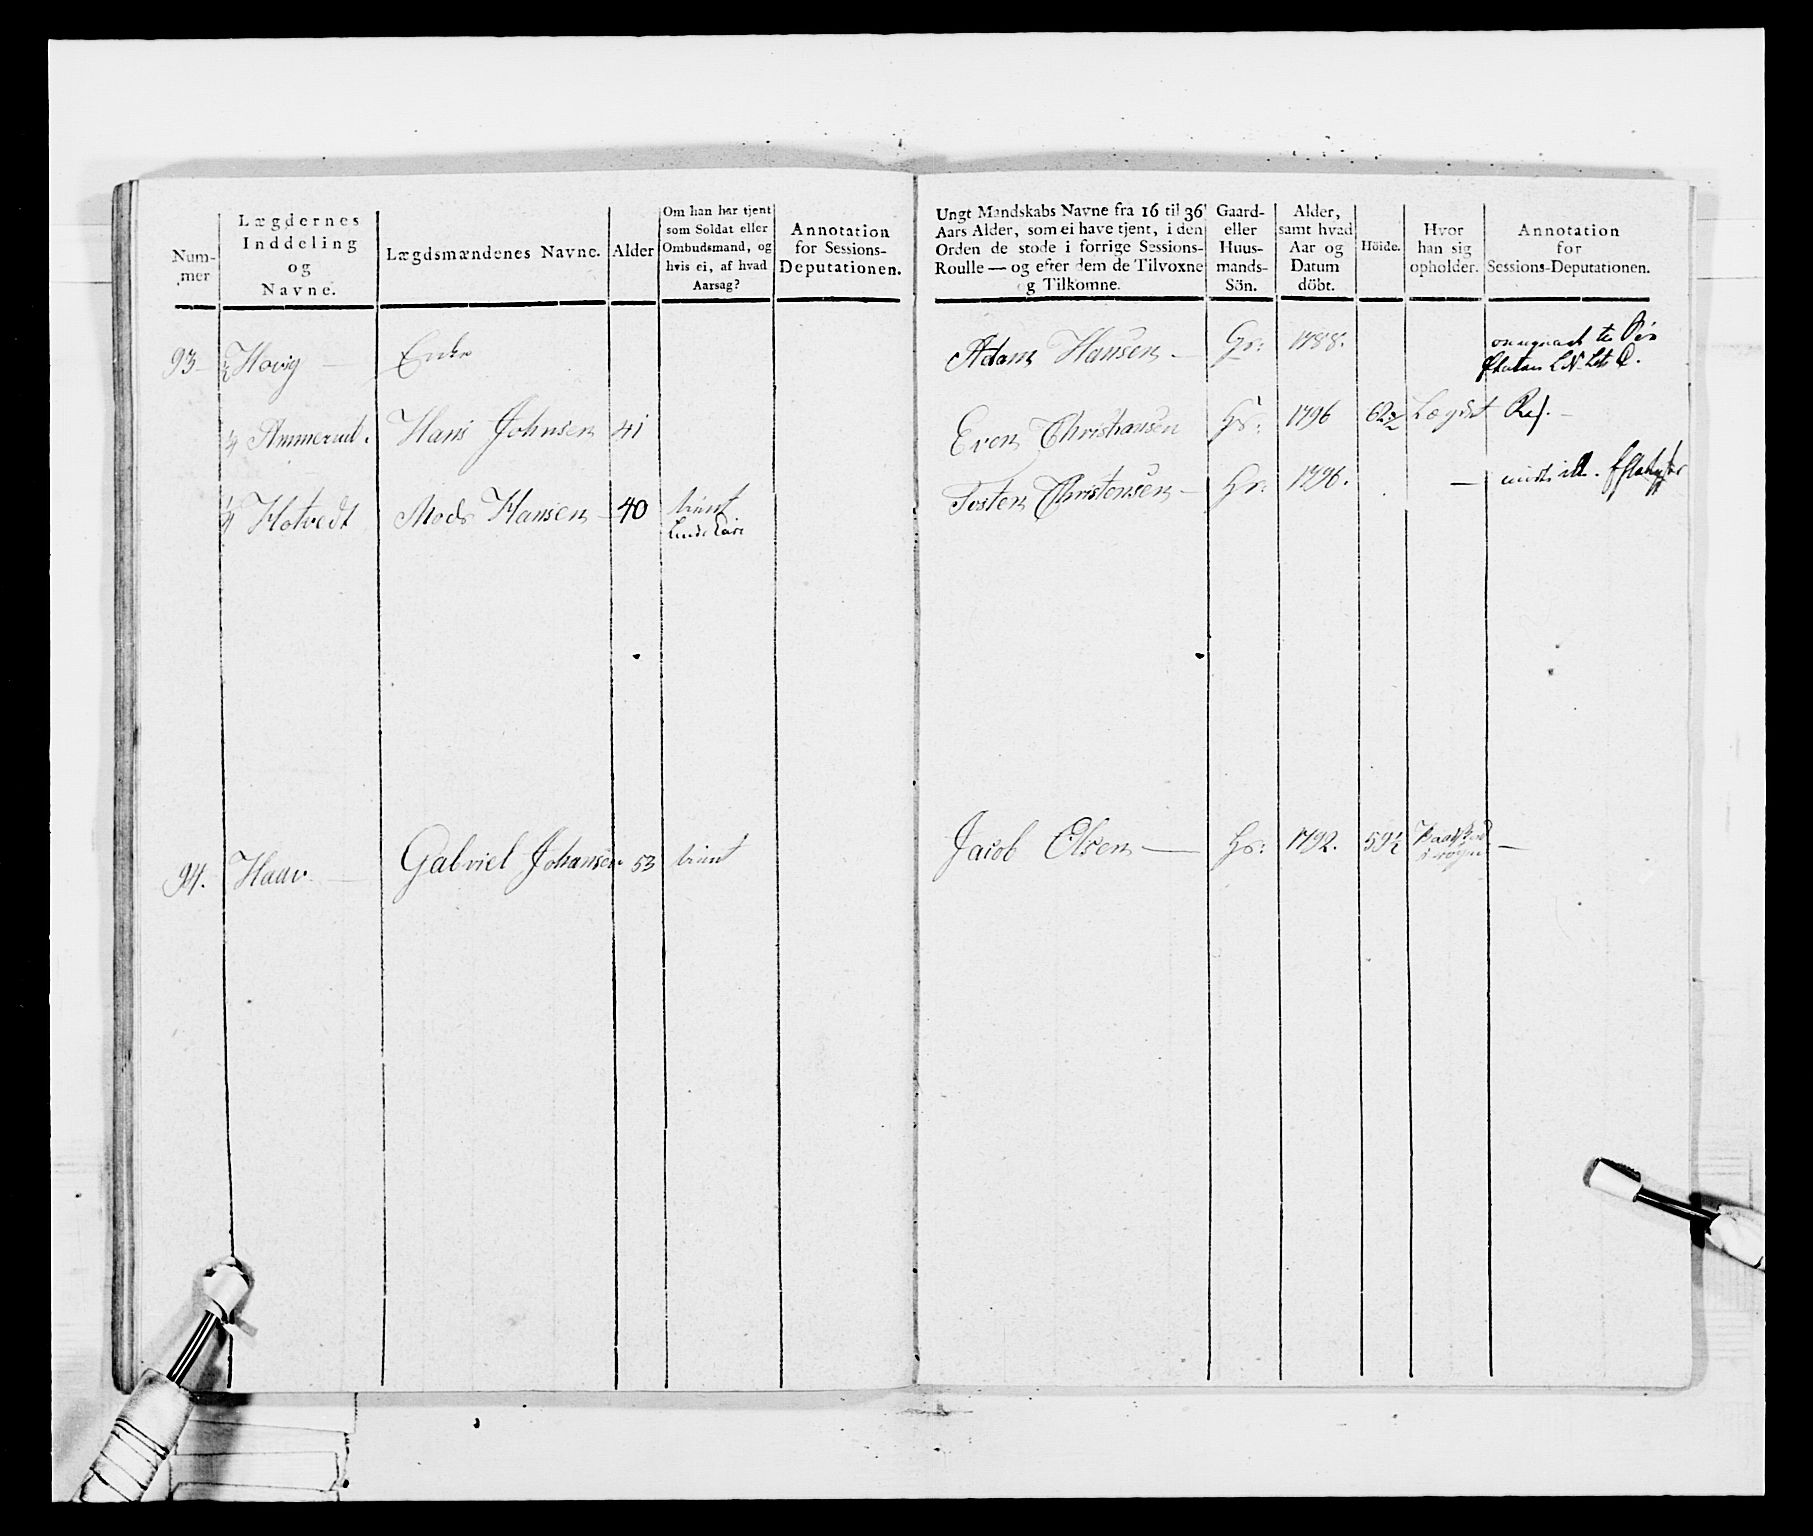 Num-
mer
Lægdernes
Inddeling
og
Navne.
Lægdsmændenes Navne.
Alder
Om han har tjent
som Soldat eller
Ombudsmand, og
hvis ei, af hvad
Aarsag?
Annotation
for Sessions-
Deputationen.
93 ½ Hovig — Enke
¼ Ammerud. Hans Johnsen 41
¼ Hotvedt Mads Hansen — 40 tient
94. Haav — Gabriel Johansen 53 tient
Ungt Mandskabs Navne fra 16 til 36
Aars Alder, som ei have tjent, i den
Orden de stode i forrige Sessions-
Roulle — og efter dem de Tilvoxne
og Tilkomne.
Gaard-
eller
Huus-
mands-
Sön.
Alder,
samt hvad
Aar og
Datum
döbt.
Höide.
Hvor
han sig
opholder.
Annotation
for
Sessions-Deputationen.
Adam Hansen — Gr: 1788.
Even Christiansen Gr: 1796 62½ Lægdet Rej. —
Tosten Christensen — Gr: 1796. —
Jacob Olsen — Gr: 1792. 59½ —